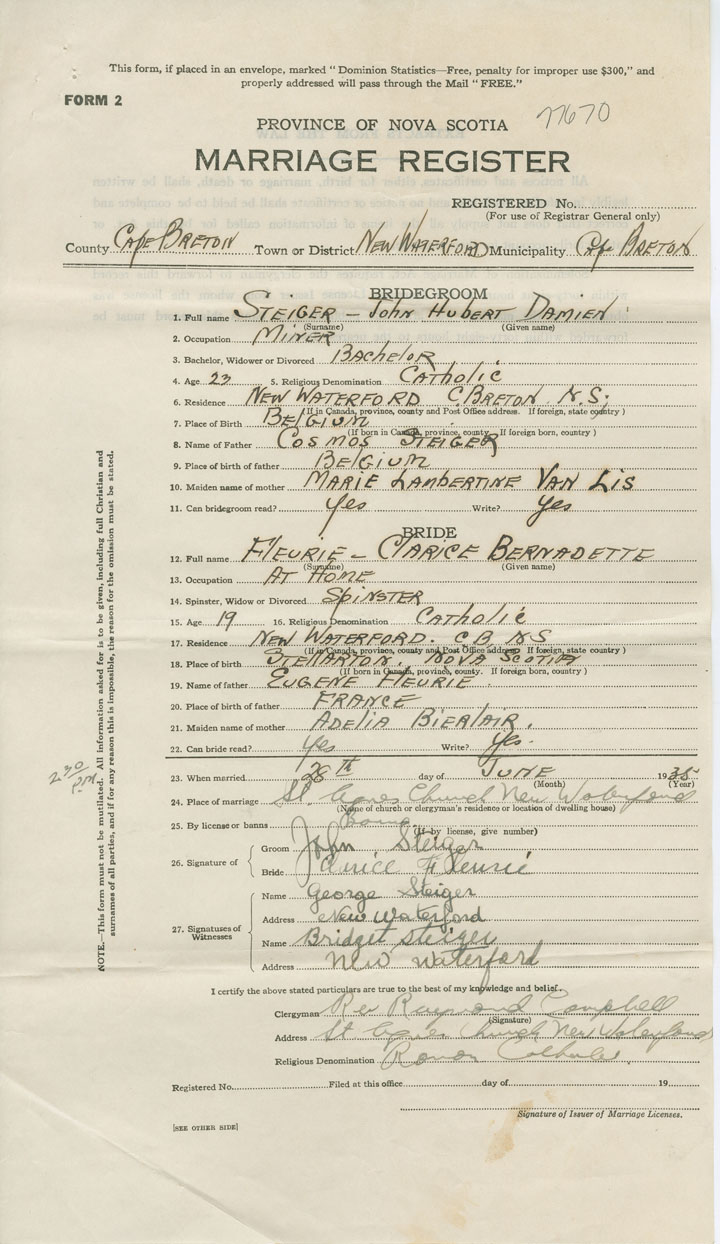 This form, if placed in an envelope, marked " Dominion Statistics—Free, penalty for improper use $300," and
properly addressed will pass through the Mail " FREE."
FORM 2
77670
PROVINCE OF NOVA SCOTIA
MARRIAGE REGISTER
REGISTERED No.
(For use of Registrar General only)
County Cape Breton Town or District New Waterford Municipality Cape Breton
BRIDEGROOM
1. Full name Steiger - John Hubert Damien
(Surname) (Given name)
2. Occupation Miner
3. Bachelor, Widower or Divorced Bachelor
4. Age 23 5. Religious Denomination Catholic
6. Residence New Waterford C. Breton N.S.
(If in Canada, province, county and Post Office address. If foreign, state country )
7. Place of Birth Belgium
(If born in Canada, province, county. If foreign born, country )
8. Name of Father Cosmos Steiger
9. Place of birth of father Belgium
10. Maiden name of mother Marie Lambertine Van Lis
11. Can bridegroom read? Yes Write? Yes
BRIDE
12. Full name Fleurie - Clarice Bernadette
(Surname) (Given name)
13. Occupation At Home
14. Spinster, Widow or Divorced Spinster
15. Age 19 16. Religious Denomination Catholic
17. Residence New Waterford. C.B. N.S
(If in Canada, province, county and Post Office address. If foreign, state country )
18. Place of birth Stellarton. Nova Scotia
(If born in Canada, province, county. If foreign born, country )
19. Name of father Eugene Fleurie
20. Place of birth of father France
21. Maiden name of mother Adelia Bierlair.
22. Can bride read? Yes Write? Yes.
23. When married 28th day of June 1935
(Month) (Year)
24. Place of marriage St Agnes Church New Waterford
(Name of church or clergyman's residence or location of dwelling house)
25. By license or banns Banns
(If by license, give number)
26. Signature of { Groom John Steiger
Bride Clarice Fleurie
27. Signatures of Witnesses { Name George Steiger
Address New Waterford
Name Bridget Steiger
Address New Waterford
I certify the above stated particulars are true to the best of my knowledge and belief.
Clergyman Rev Raymond Campbell
(Signature)
Address St Agnes Church New Waterford
Religious Denomination Roman Catholic
Registered No. Filed at this office day of 19
Signature of Issuer of Marriage Licenses.
[SEE OTHER SIDE]
NOTE.—This form must not be mutilated. All information asked for is to be given, including full Christian and
surnames of all parties, and if for any reason this is impossible, the reason for the omission must be stated.
2 30
P.M.